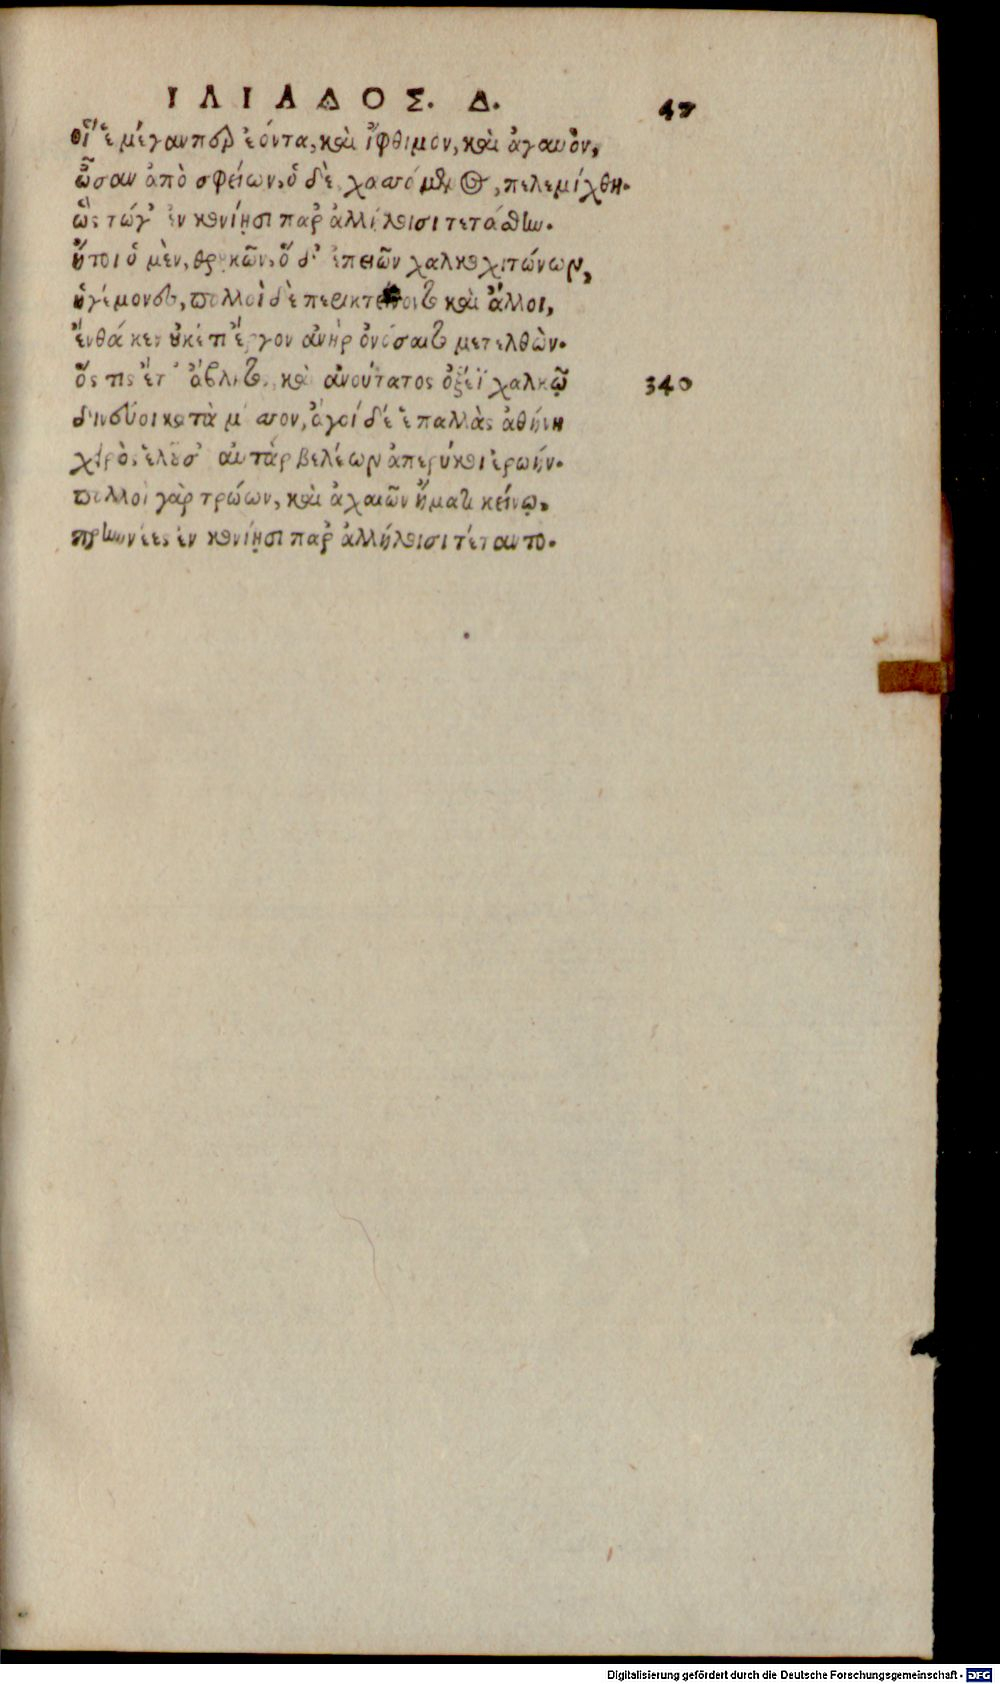 ΙΛΙΑΔΟΣ. Δ. 47
οἵ ἑ μέγαν περ ἐόντα, καὶ ἴφθιμον, καὶ ἀγαυὸν,
ὦσαν ἀπὸ σφείων, ὁ δὲ χασσάμενος, πελεμίχθη.
ὣς τώγ' ἐν κονίῃσι παρ' ἀλλήλοισι τετάσθην.
ἤτοι ὁ μὲν, θρῃκῶν, ὅ δ' ἐπειῶν χαλκοχιτώνων,
ἡγέμονες, πολλοὶ δὲ περικτείνοντο καὶ ἄλλοι,
ἔνθά κεν οὐκέτι ἔργον ἀνὴρ ὀνόσαιτο μετελθὼν.
ὅς τις ἔτ' ἄβλητος, καὶ ἀνούτατος ὀξέϊ χαλκῷ 340
δινεύοι κατὰ μέσσον, ἄγοι δέ ἑ παλλὰς ἀθήνη
χειρὸς ἑλοῦσ' αὐτὰρ βελέων ἀπερύκοι ἐρωήν.
πολλοὶ γὰρ τρώων, καὶ ἀχαιῶν ἤματι κείνῳ,
πρηνέες ἐν κονίῃσι παρ' ἀλλήλοισι τέταντο.
Digitalisierung gefördert durch die Deutsche Forschungsgemeinschaft - DFG